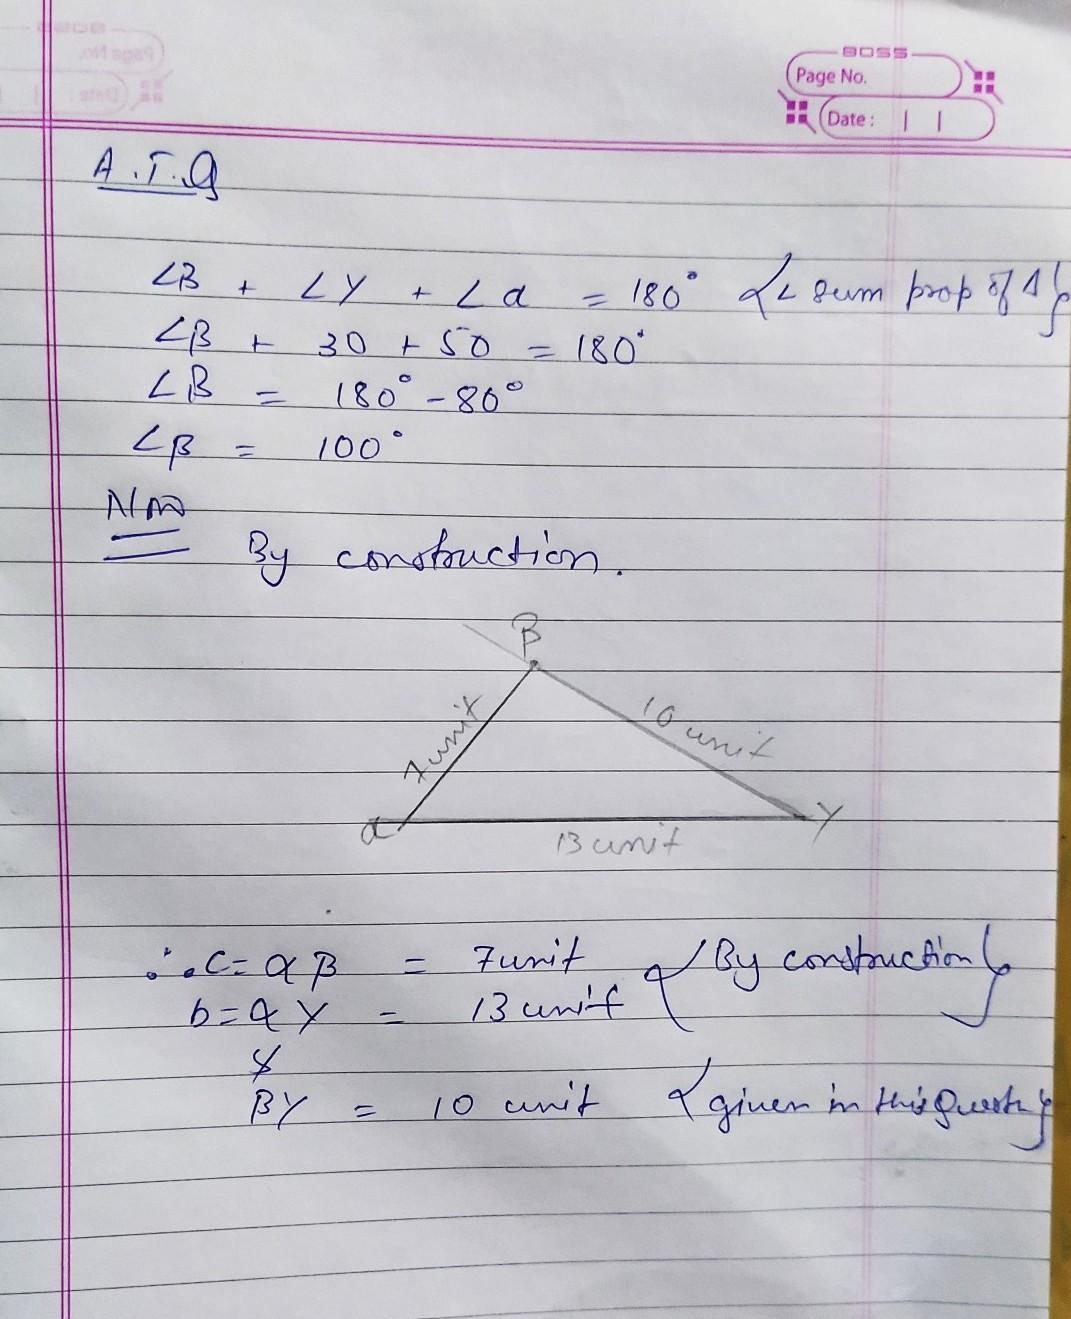 BOSS
Page No.
Date :
A.T.Q
∠β + ∠γ + ∠α = 180° {∠ sum prop of Δ}
∠β + 30 + 50 = 180°
∠β = 180° - 80°
∠β = 100°
Now
By construction.
β
7 unit
10 unit
α
γ
13 unit
∴ c = αβ = 7 unit {By construction}
b = αγ = 13 unit
&
βγ = 10 unit {given in this